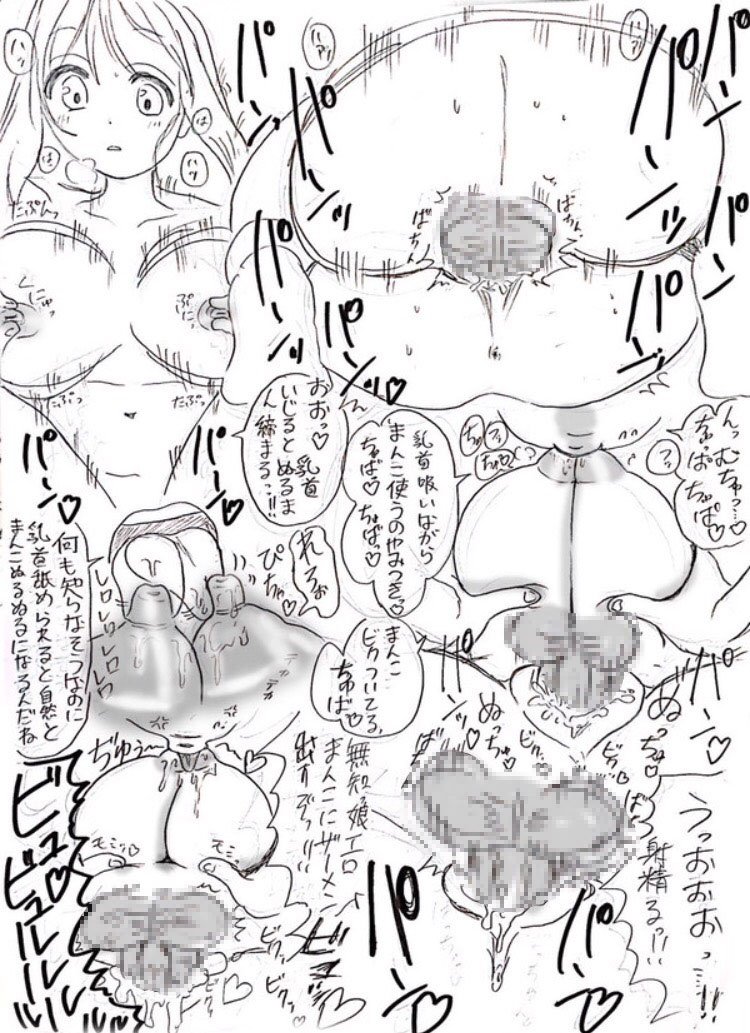 ハァッ
パンッ
パンッ
パンッ
パンッ
たぷんっ
くにゅっ
ぷにっ
たぷっ
たぷっ
ばちんっ
ばちんっ
パンッ
パンッ
パンッ♡
パンッ♡
おおっ♡乳首
いじるとぬるま
ん締まるっ!!
んっ
むちゅっ?…
ちゅぱ♡
ちゅぱ♡
乳首吸いながら
まんこ使うのやみつきっ♡
ちゅぱっ♡ちゅばっ♡
れろぉ
ぴちゃ♡
レロレロレロレロ
何も知らなそうなのに
乳首舐められると自然と
まんこぬるぬるになるんだね
まんこ
ビクついてる、
ちゅば♡
テカテカ
パンッ♡
パンッ♡
ぬっちゅ♡
ぬっちゃ♡
ビクッ
ビクッ
ぢゅう~
モミッ♡
モミッ
無知娘エロ
まんこにザーメン
出すぞっ!!!
うっおおおっ…!!
射精るっ!!
ビュービュルルルルッ
ビクッ
ビクッ♡
パンッ♡
パンッ♡